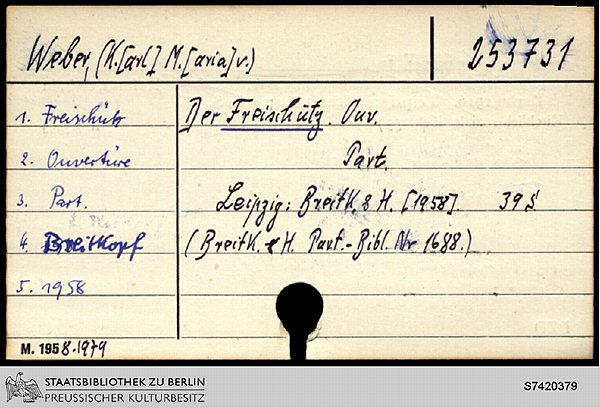 Weber, (K.[arl] M.[aria] v.)
253731
1. Freischütz
2. Ouvertüre
3. Part.
4. Breitkopf
5. 1958
Der Freischütz. Ouv.
Part.
Leipzig: Breitk. & H. [1958] 39 S.
(Breitk. & H. Part.-Bibl. Nr 1688.)
M. 1958.1979
STAATSBIBLIOTHEK ZU BERLIN
PREUSSISCHER KULTURBESITZ
S7420379